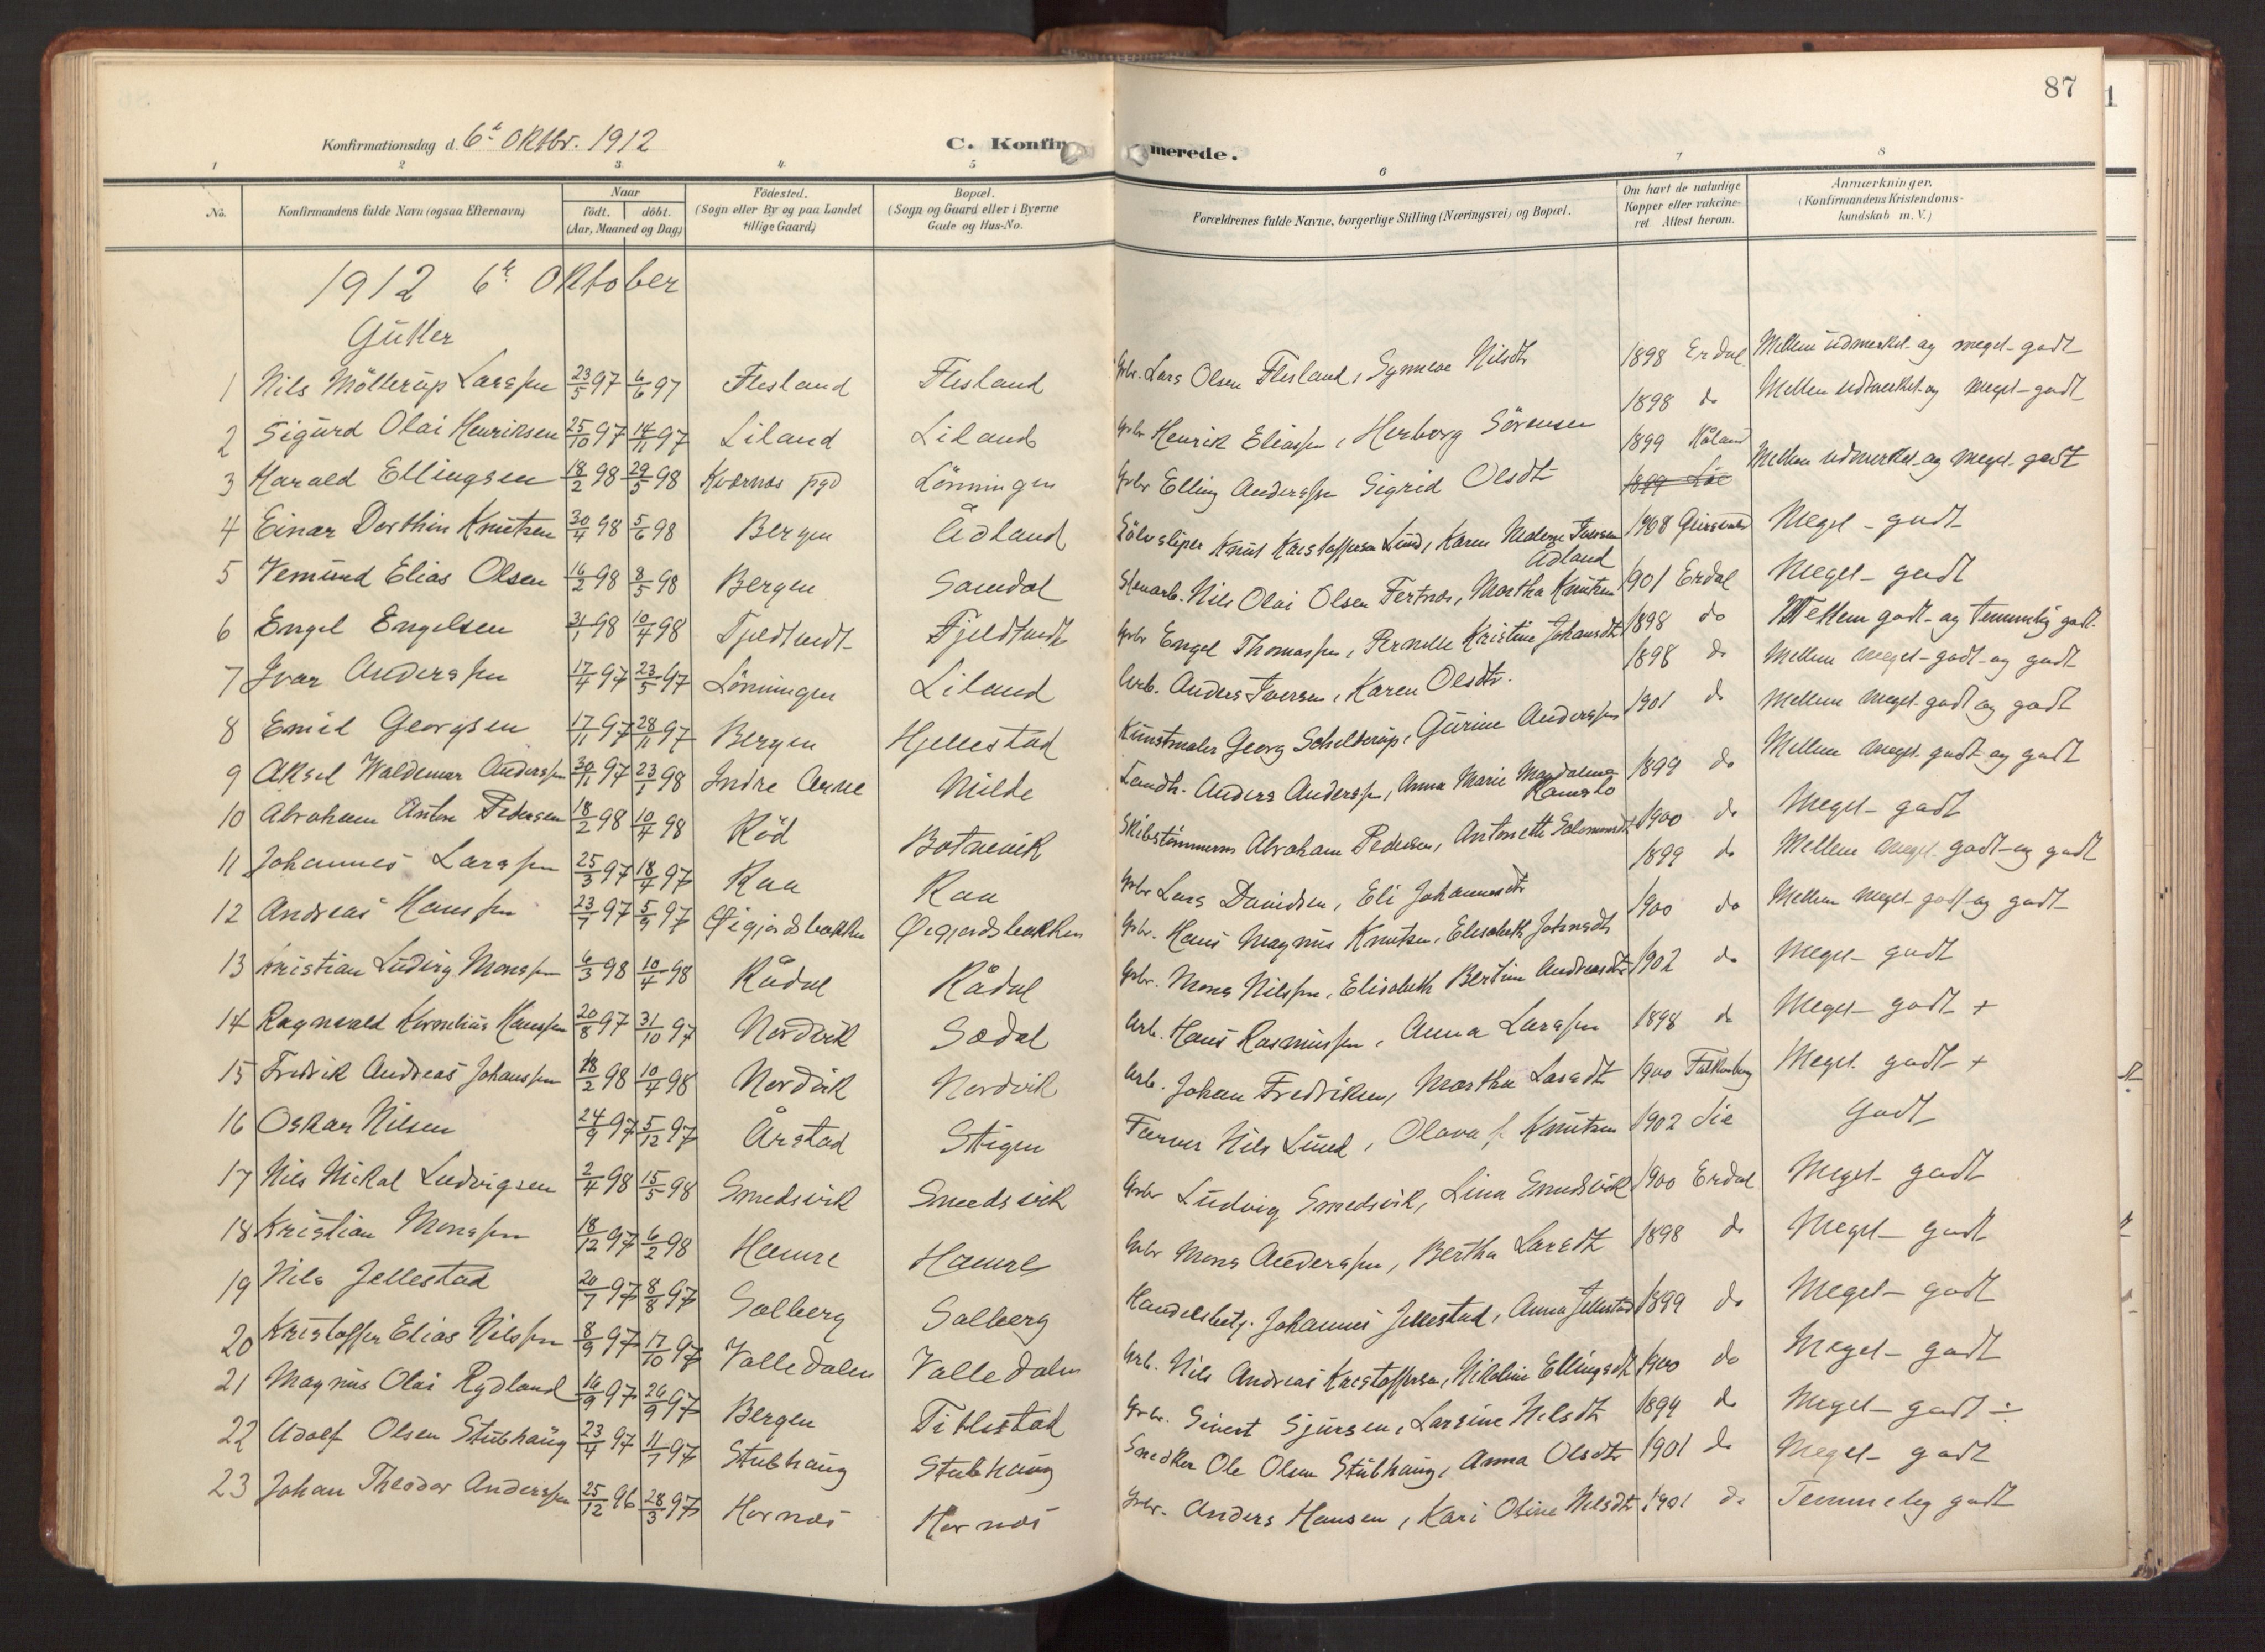 87
1
Konfirmationsdag d. 6te Oktbr. 1912
C. Konfir
merede.
1 2 3 4. 5 6 7 8
No.
Konfirmandens fulde Navn (ogsaa Efternavn)
Naar
födt. döbt.
(Aar, Maaned og Dag)
Födested.
(Sogn eller By og paa Landet
tillige Gaard)
Bopæl.
(Sogn og Gaard eller i Byerne
Gade og Hus-No.
Forældrenes fulde Navne, borgerlige Stilling (Næringsvei) og Bopæl.
Om havt de naturlige
Kopper eller vakcine-
ret Attest herom.
Anmærkninger.
(Konfirmandens Kristendoms-
kundskab m. V.)
1912 6te Oktober
Gutter
1 Nils Möllerup Larssen 23/5 97 6/6 97 Flesland Flesland Gbr. Lars Olsen Flesland, Synneve Nilsdtr 1898 Erdal Mellem udmerket og meget godt
2 Sigurd Olai Henriksen 25/10 97 14/11 97 Liland Liland Gbr Henrik Eliassen, Herborg Sörensen 1898 do Mellem udmerket og meget godt
3 Harald Ellingsen 18/2 98 29/5 98 Kværnes pgd Lönningen Gbr Elling Anderssen Sigrid Olsdtr 1899 Håland Mellem udmerket og meget godt
1899 Lie
4 Einar Dorthin Knutsen 30/4 98 5/6 98 Bergen Ådland Sölvsliper Knut Kristoffersen Lund, Karen Malene Iversen 1908 Meget godt
Ådland
5 Vemund Elias Olsen 16/2 98 8/5 98 Bergen Sandal Stenarb. Nils Olai Olsen Tertnæs, Martha Knutsen 1901 Erdal Meget godt
6 Engel Engelsen 31/1 98 10/4 98 Tjeldtuedt Fjeldtuedt Gbr Engel Thomassen, Pernille Kristine Johansdtr 1898 do Mellem godt og temmelig godt
7 Ivar Anderssen 17/4 97 23/5 97 Lönningen Liland Arb. Anders Iversen, Karen Olsdtr. 1898 do Mellem meget godt og godt
8 Emil Georgsen 17/11 97 28/11 97 Bergen Hjellestad Kunstmaler Georg Schelderup, Gurine Anderssen 1901 do Mellem meget godt og godt
9 Aksel Waldemar Anderssen 30/11 97 23/1 98 Indre Arne Milde Landh. Anders Anderssen, Anna Marie Magdalena 1899 do Mellem meget godt og godt
Ramslo
10 Abraham Anton Pedersen 18/2 98 10/4 98 Röd Botnevik Skibstömmerm Abraham Pedersen, Antonette Salomonsdtr 1900 do Meget godt
11 Johannes Larssen 25/3 97 18/4 97 Raa Raa Gbr Lars Davidsen, Eli Johannesdtr 1899 do Mellem meget godt og godt
12 Andreas Hanssen 23/7 97 5/9 97 Øigjordsbakken Øigjordsbakken Gbr. Hans Magnus Knutsen, Elisabeth Johnsdtr 1900 do Mellem meget godt og godt
13 Kristian Ludvig Monssen 6/3 98 10/4 98 Rådal Rådal Gbr. Mons Nilssen, Elisabeth Bertine Andreasdtr 1902 do Meget godt
14 Ragnvald Kornelius Hanssen 20/8 97 31/10 97 Nordvik Sædal Arb. Hans Rasmussen, Anna Larssen 1898 do Meget godt +
15 Fredrik Andreas Johanssen 18/2 98 10/4 98 Nordvik Nordvik Arb. Johan Fredriksen, Martha Larsdtr 1900 Falkenberg Meget godt +
16 Oskar Nilsen 24/9 97 5/12 97 Årstad Stigen Farver Nils Lund, Olava f. Knutsen 1902 Lie Godt
17 Nils Mikal Ludvigsen 2/4 98 15/5 98 Smedsvik Smedsvik Gbr Ludvig Smedsvik, Lina Smedsvik 1900 Erdal Meget godt
18 Kristian Monssen 18/12 97 6/2 98 Hamre Hamre Gbr Mons Anderssen, Bertha Larsdtr 1898 do Meget godt
19 Nils Jellestad 20/7 97 8/8 97 Solberg Solberg Handelsbetj. Johannes Jellestad, Anna Jellestad 1899 do Meget godt
20 Kristoffer Elias Nilssen 8/9 97 17/10 97 Valledalen Valledalen Arb. Nils Andreas Kristoffersen, Nikoline Ellingsdtr 1900 do Meget godt
21 Magnus Olai Rydland 16/9 97 26/9 97 Bergen Titlestad Gbr. Sivert Sjursen, Larsine Nilsdtr 1899 do Meget godt ÷
22 Adolf Olsen Stubhaug 23/4 97 11/7 97 Stubhaug Stubhaug Snedker Ole Olsen Stubhaug, Anna Olsdtr 1901 do Meget godt
23 Johan Theodor Anderssen 25/12 96 28/3 97 Hornæs Hornæs Gbr. Anders Hansen, Kari Oline Nilsdtr 1901 do Temmelig godt